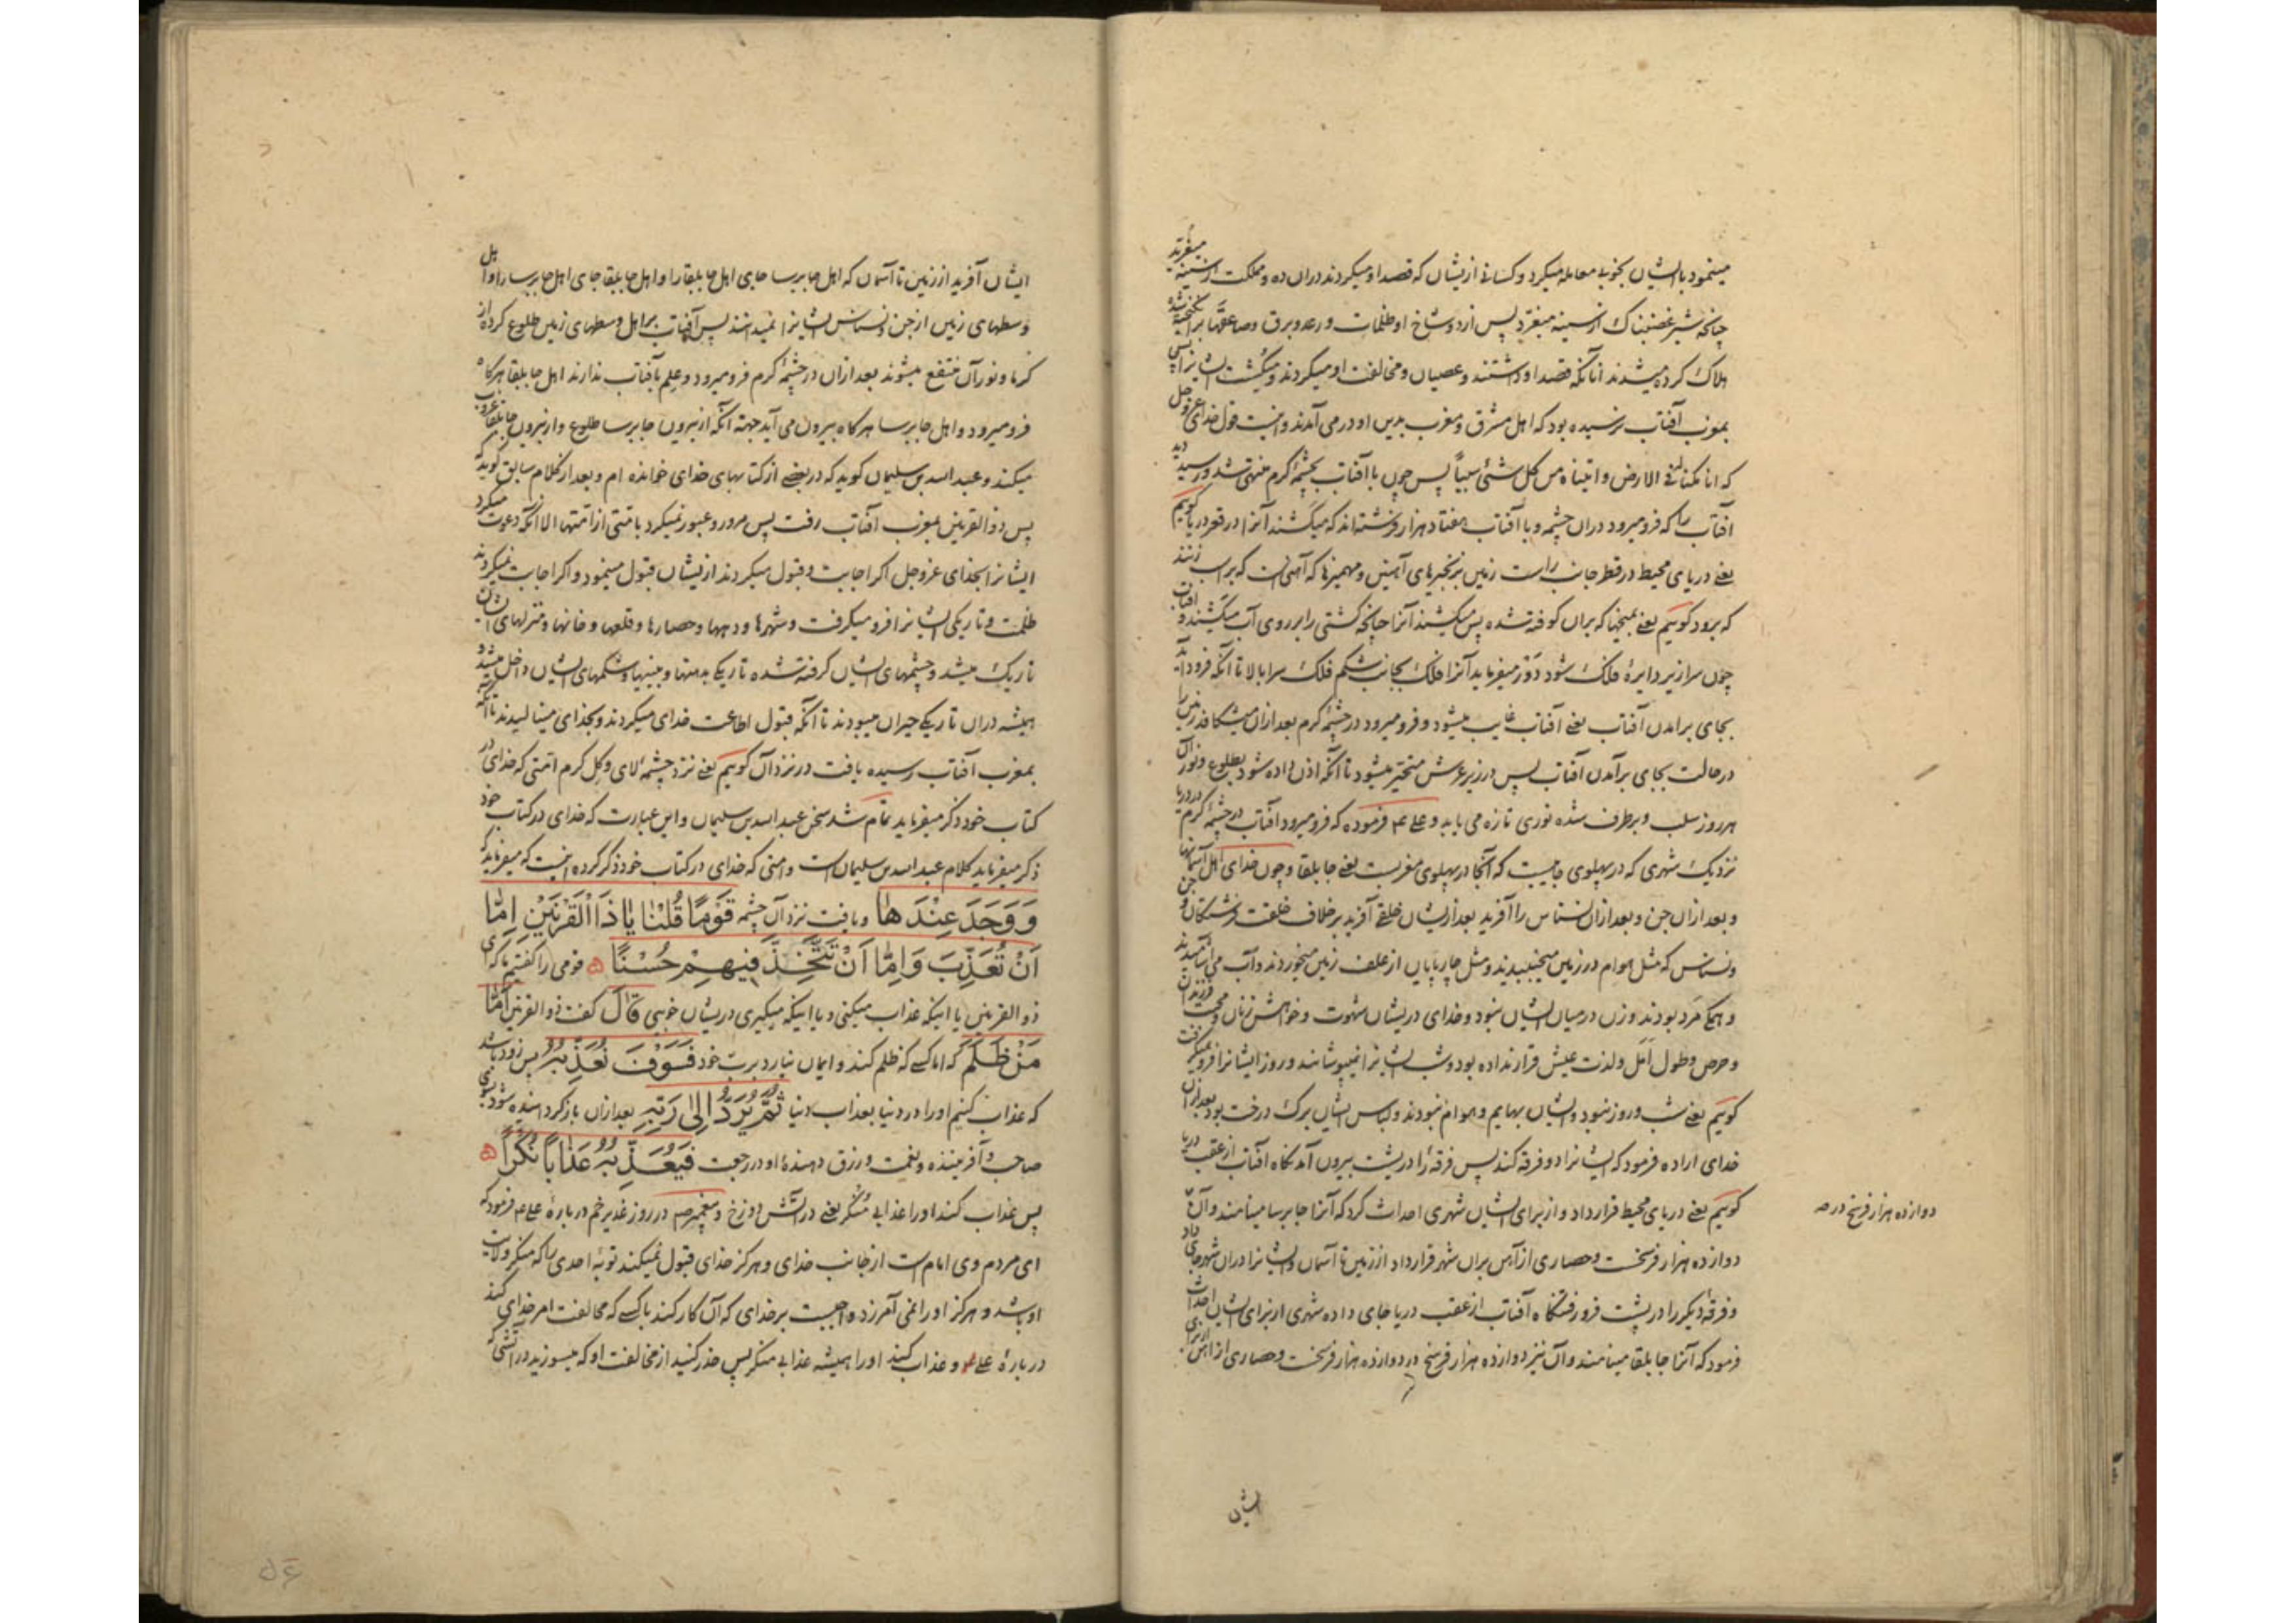 مینمود با ایشان بخوبی معامله میکرد و کسانی از ایشان که قصد او میکردند دران ده و مملکت از سینه میغرید
چنانچه شیر غضبناک از سینه میغرد پس از دو شاخ او ظلمات و رعد و برق و صاعقها برانگیخته شده
هلاک کرده میشدند آنانکه قصد او داشتند و عصیان و مخالفت او میکردند و میکشت ایشانرا پس
بمغرب آفتاب نرسیده بود که اهل مشرق و مغرب بدین او در می آمدند و اینست قول خدای عز و جل
که انا مکنا له فی الارض و اتیناه من کل شئ سبباً پس چون با آفتاب بچشمهٔ گرم منتهی شد و رسید دید
آفتاب را که فرو میرود دران چشمه و با آفتاب هفتاد هزار فرشته اند که میکشند آنرا در قعر دریا گوییم
یعنی دریای محیط در قطر جانب راست زمین بزنجیرهای آهنین و مهمیزها که آهنی است که بر اسب زنند
که برود گوییم یعنی بمیخها که بران کوفته شده پس میکشند آنرا چنانچه کشتی را بر روی آب میکشند و آفتاب
چون سرازیر دایرهٔ فلک شود دور میفرماید آنرا فلک بجانب شکم فلک سرا بالا تا آنکه فرود آید
بجای برآمدن آفتاب یعنی آفتاب غایب میشود و فرو میرود در چشمهٔ گرم بعد ازان میشکافد زمین را
در حالت بجای برآمدن آفتاب پس در زیر عرش متحیر میشود تا آنکه اذن داده شود بطلوع و نور آن
هر روز سلب و برطرف شده نوری تازه می یابد و علی ع م فرموده که فرو میرود آفتاب در چشمهٔ گرم در دریا
نزدیک شهری که در پهلوی جایست که آنجا در پهلوی مغربست یعنی جابلقا و چون خدای اهل آسمانها
و بعد ازان جن و بعد ازان نسناس را آفرید بعد از ایشان خلقی آفرید بر خلاف خلقت فرشتکان و جن
و نسناس که مثل هوام در زمین میجنبیدند و مثل چارپایان از علف زمین میخوردند و آب می آشامیدند
و همگی مرد بودند و زن در میان ایشان نبود و خدای در ایشان شهوت و خواهش زنان و محبت فرزندان
و حرص و طول امل و لذت عیش قرار نداده بود و شب ایشانرا نمیپوشانند و روز ایشانرا فرو نمیگرفت
گوییم یعنی شب و روز نبود و ایشان بهایم و هوام نبودند و لباس ایشان برک درخت بود بعد ازان
خدای اراده فرمود که ایشانرا دو فرقه کند پس فرقهٔ را در پشت بیرون آمدنگاه آفتاب از عقب دریا
گوییم یعنی دریای محیط قرار داد و از برای ایشان شهری احداث کرد که آنرا جابرسا مینامند و آن
دوازده هزار فرسخ در
دوازده هزار فرسخست و حصاری از آهن بران شهر قرار داد از زمین تا آسمان و ایشانرا دران شهر جای داد
و فرقهٔ دیگر را در پشت فرو رفتنگاه آفتاب از عقب دریا جای داده شهری از برای ایشان احداث
فرمود که آنرا جابلقا مینامند و آن نیز دوازده هزار فرسخ در دوازده هزار فرسخست و حصاری از آهن از برای
ایشان
ایشان آفرید از زمین تا آسمان که اهل جابرسا جای اهل جابلقا را و اهل جابلقا جای اهل جابرسا را و اهل
وسطهای زمین از جن و نسناس ایشانرا نمیدانند پس آفتاب بر اهل وسطهای زمین طلوع کرده از
گرما و نور آن منتفع میشوند بعد ازان در چشمهٔ گرم فرو میرود و علم بآفتاب ندارند اهل جابلقا هرگاه
فرو میرود و اهل جابرسا هرگاه بیرون می آید جهته آنکه از بیرون جابرسا طلوع و از بیرون جابلقا غروب
میکند و عبد الله بن سلیمان گوید که در بعضی از کتابهای خدای خوانده ام و بعد از کلام سابق گوید که
پس ذو القرنین بمغرب آفتاب رفت پس مرور و عبور نمیکرد بامتی از امتها الا آنکه دعوت میکرد
ایشانرا بخدای عز و جل اگر اجابت و قبول میکردند از ایشان قبول مینمود و اگر اجابت نمیکردند
ظلمت و تاریکی ایشانرا فرو میکرفت و شهرها و دهها و حصارها و قلعها و خانها و منزلهای ایشان
تاریک میشد و چشمهای ایشان گرفته شده تاریکی بدهنها و بینیها و شکمهای ایشان داخل میشد و
همیشه دران تاریکی حیران میبودند تا آنکه قبول اطاعت خدای میکردند و بخدای مینالیدند تا آنکه
بمغرب آفتاب رسیده یافت در نزد آن گوییم یعنی نزد چشمهٔ لای و کل گرم امتی که خدای در
کتاب خود ذکر میفرماید تمام شد سخن عبد الله بن سلیمان و این عبارت که خدای در کتاب خود
ذکر میفرماید کلام عبد الله بن سلیمان است و امتی که خدای در کتاب خود ذکر کرده اینست که میفرماید که
وَوَجَدَ عِنْدَهَا و یافت نزد آن چشمه قَوْمًا قُلْنَا يَا ذَا الْقَرْنَيْنِ اِمَّا
اَنْ تُعَذِّبَ وَاِمَّا اَنْ تَتَّخِذَ فِيهِمْ حُسْنًا قومی را گفتیم ما که ای
ذو القرنین یا اینکه عذاب میکنی و یا اینکه میگیری در ایشان خوبی قَالَ گفت ذو القرنین اَمَّا
مَنْ ظَلَمَ که اما کسی که ظلم کند و ایمان نیارد برب خود فَسَوْفَ نُعَذِّبُهُ پس زود باشد
که عذاب کنیم او را در دنیا بعذاب دنیا ثُمَّ يُرَدُّ اِلٰى رَبِّهِ بعد ازان بازگردانیده شود بسوی
صاحب و آفریننده و نعمت و رزق دهندهٔ او در رجعت فَيُعَذِّبُهُ عَذَابًا نُكْرًا
پس عذاب کند او را عذابی منکر یعنی در آتش دوزخ و پیغمبر ص م در روز غدیر خم در بارهٔ علی ع م فرمود که
ای مردم وی امام است از جانب خدای و هرگز خدای قبول نمیکند توبهٔ احدی را که منکر ولایت
او باشد و هرگز او را نمی آمرزد واجبست بر خدای که آن کار کند با کسی که مخالفت امر خدای کند
در بارهٔ علی ع و عذاب کند او را همیشه عذابی منکر پس حذر کنید از مخالفت او که میسوزید در آتشی که